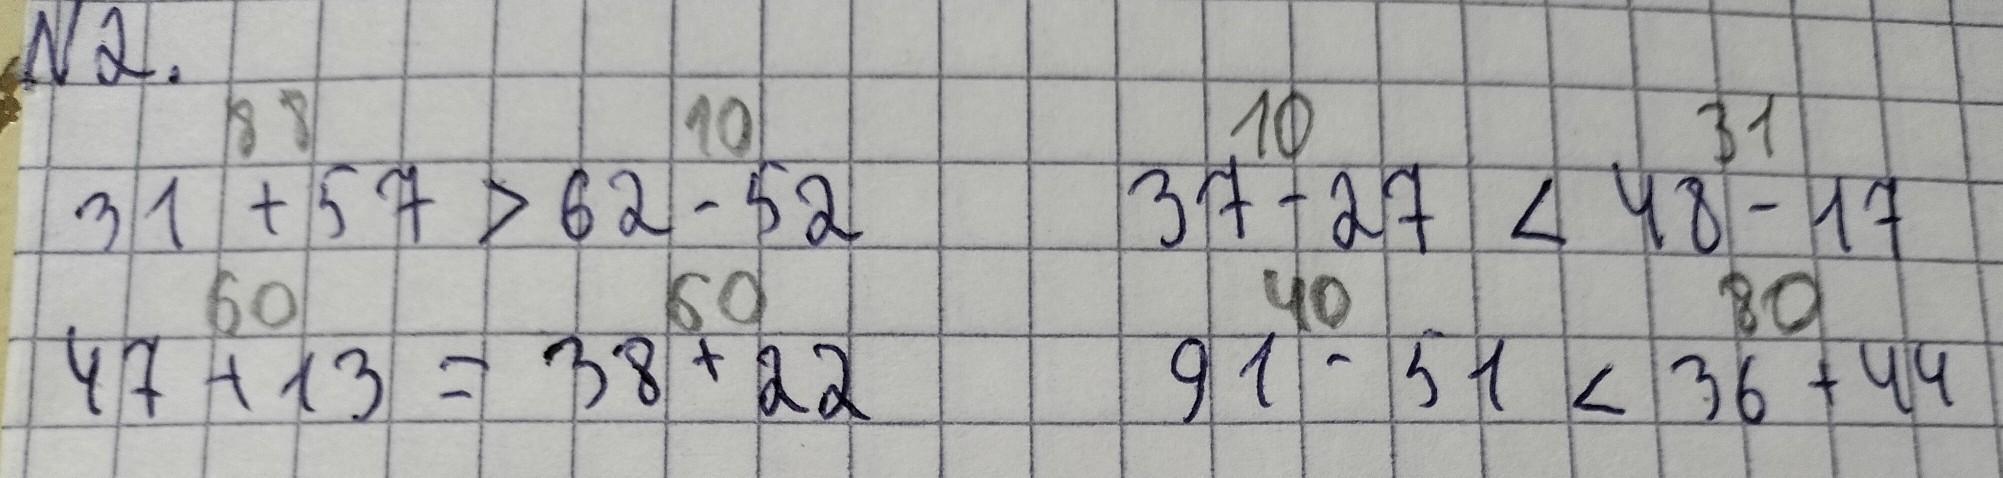 N2.
88 10 10 31
31 + 57 > 62 - 52 37 - 27 < 48 - 17
60 60 40 80
47 + 13 = 38 + 22 91 - 51 < 36 + 44